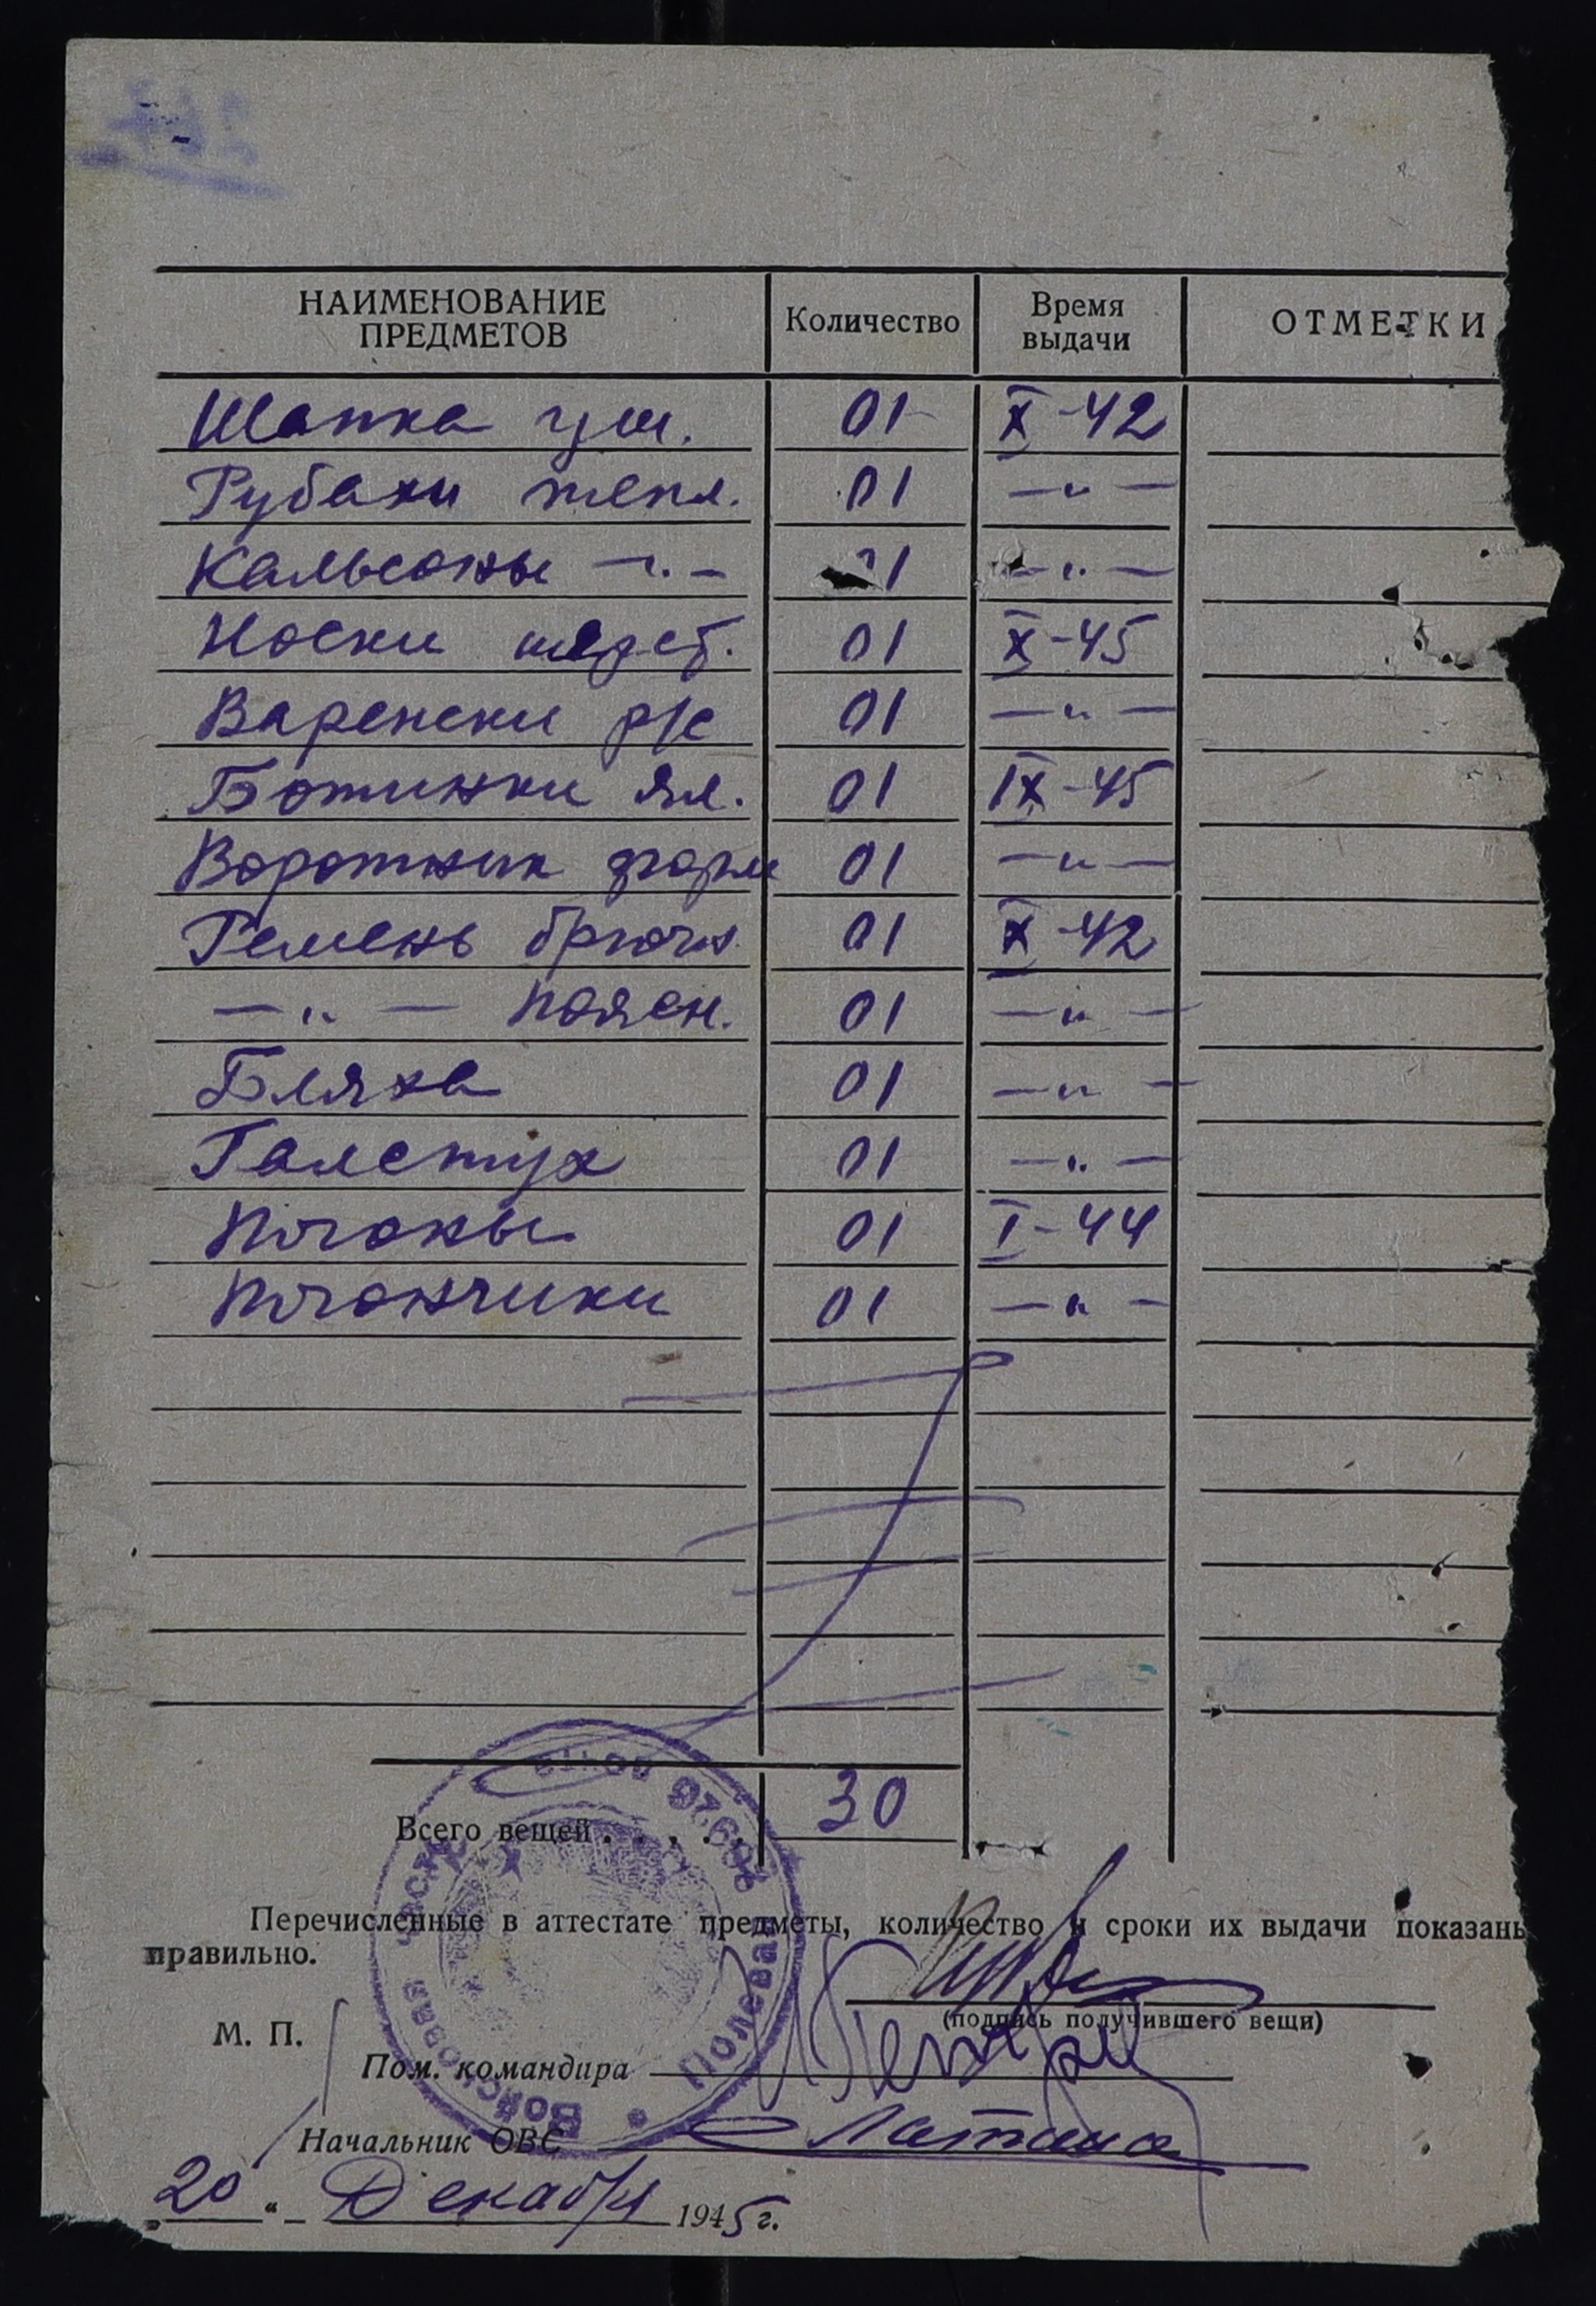 НАИМЕНОВАНИЕ ПРЕДМЕТОВ Количество Время выдачи ОТМЕТКИ
Шапка уш. 01 X-42
Рубахи тепл. 01 —"—
Кальсоны —"— 01 —"—
Носки шерст. 01 X-45
Варежки р/к 01 —"—
Ботинки ял. 01 IX-45
Воротник форм 01 —"—
Ремень брючн. 01 X-42
—"— поясн. 01 —"—
Бляха 01 —"—
Галстух 01 —"—
Погоны 01 I-44
Погончики 01 —"—
Всего вещей . . . . . 30
Перечисленные в аттестате предметы, количество и сроки их выдачи показаны
правильно.
(подпись получившего вещи)
М. П.
Пом. командира
Начальник ОВС
20 " Декабря 1945 г.
Войсковая часть Полевая почта